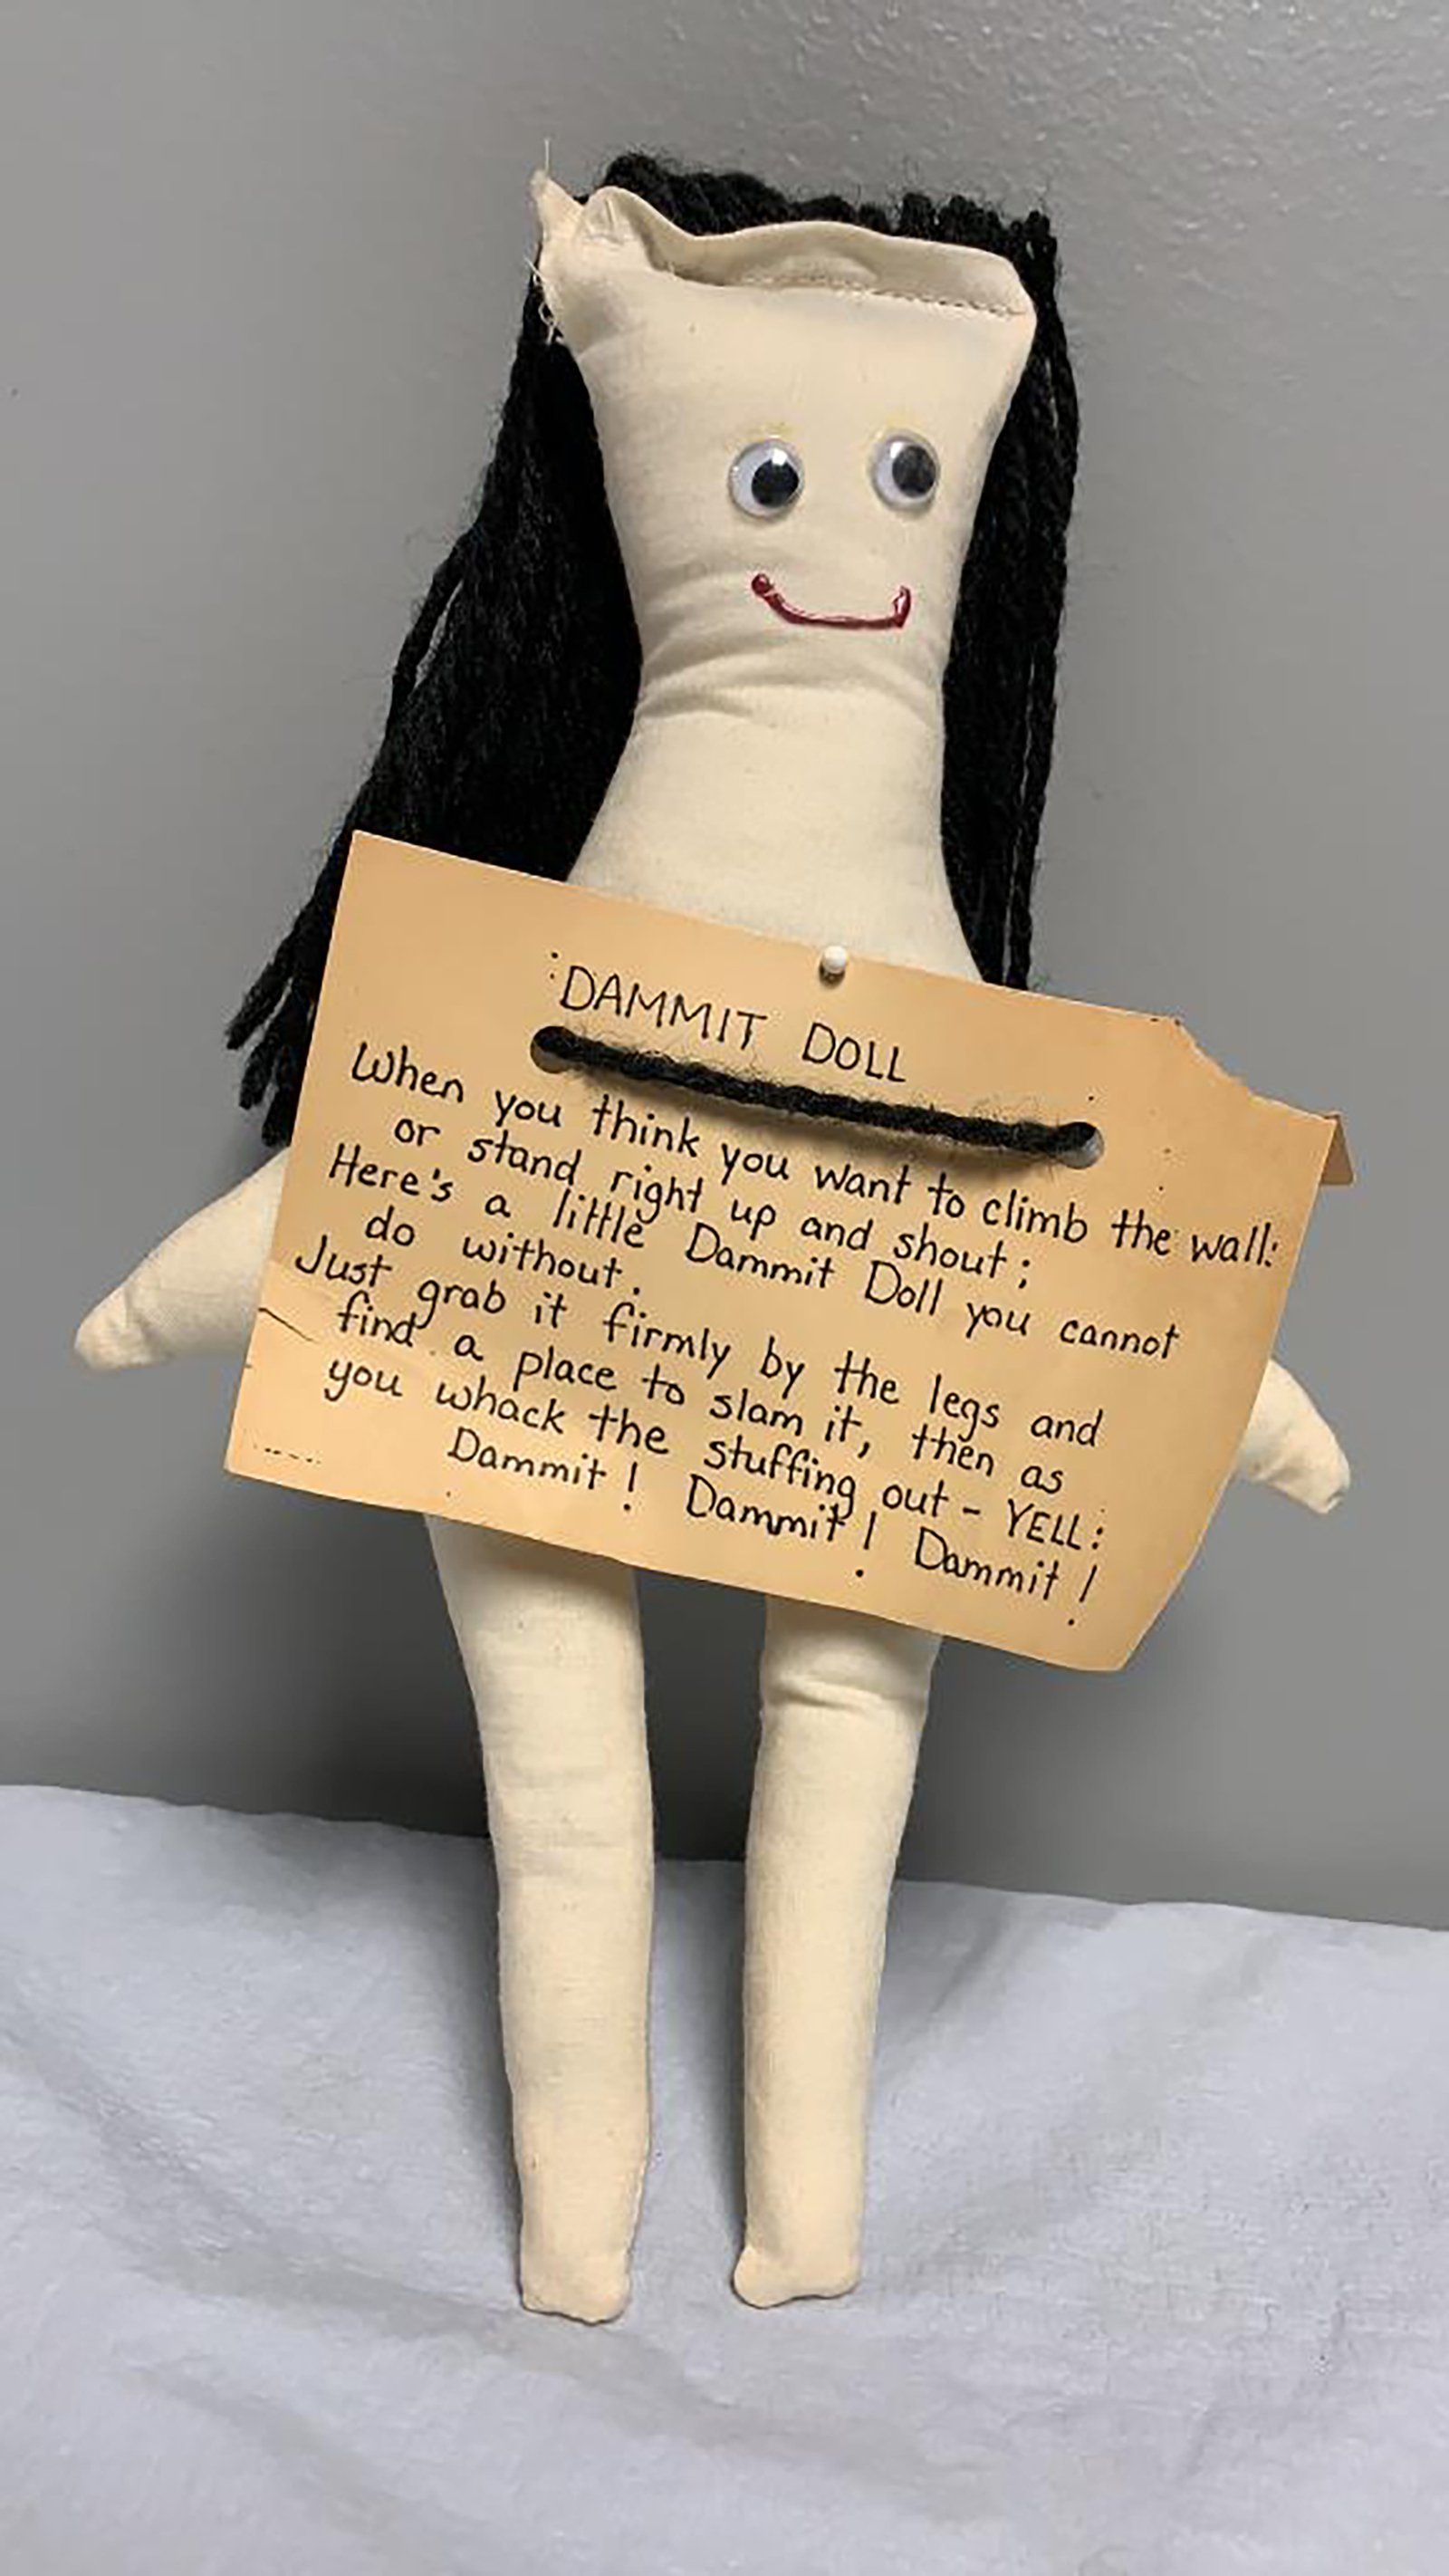 DAMMIT DOLL
When you think you want to climb the wall:
or stand right up and shout;
Here's a little Dammit Doll you cannot
do without.
Just grab it firmly by the legs and
find a place to slam it, then as
you whack the stuffing out - YELL:
Dammit! Dammit! Dammit!